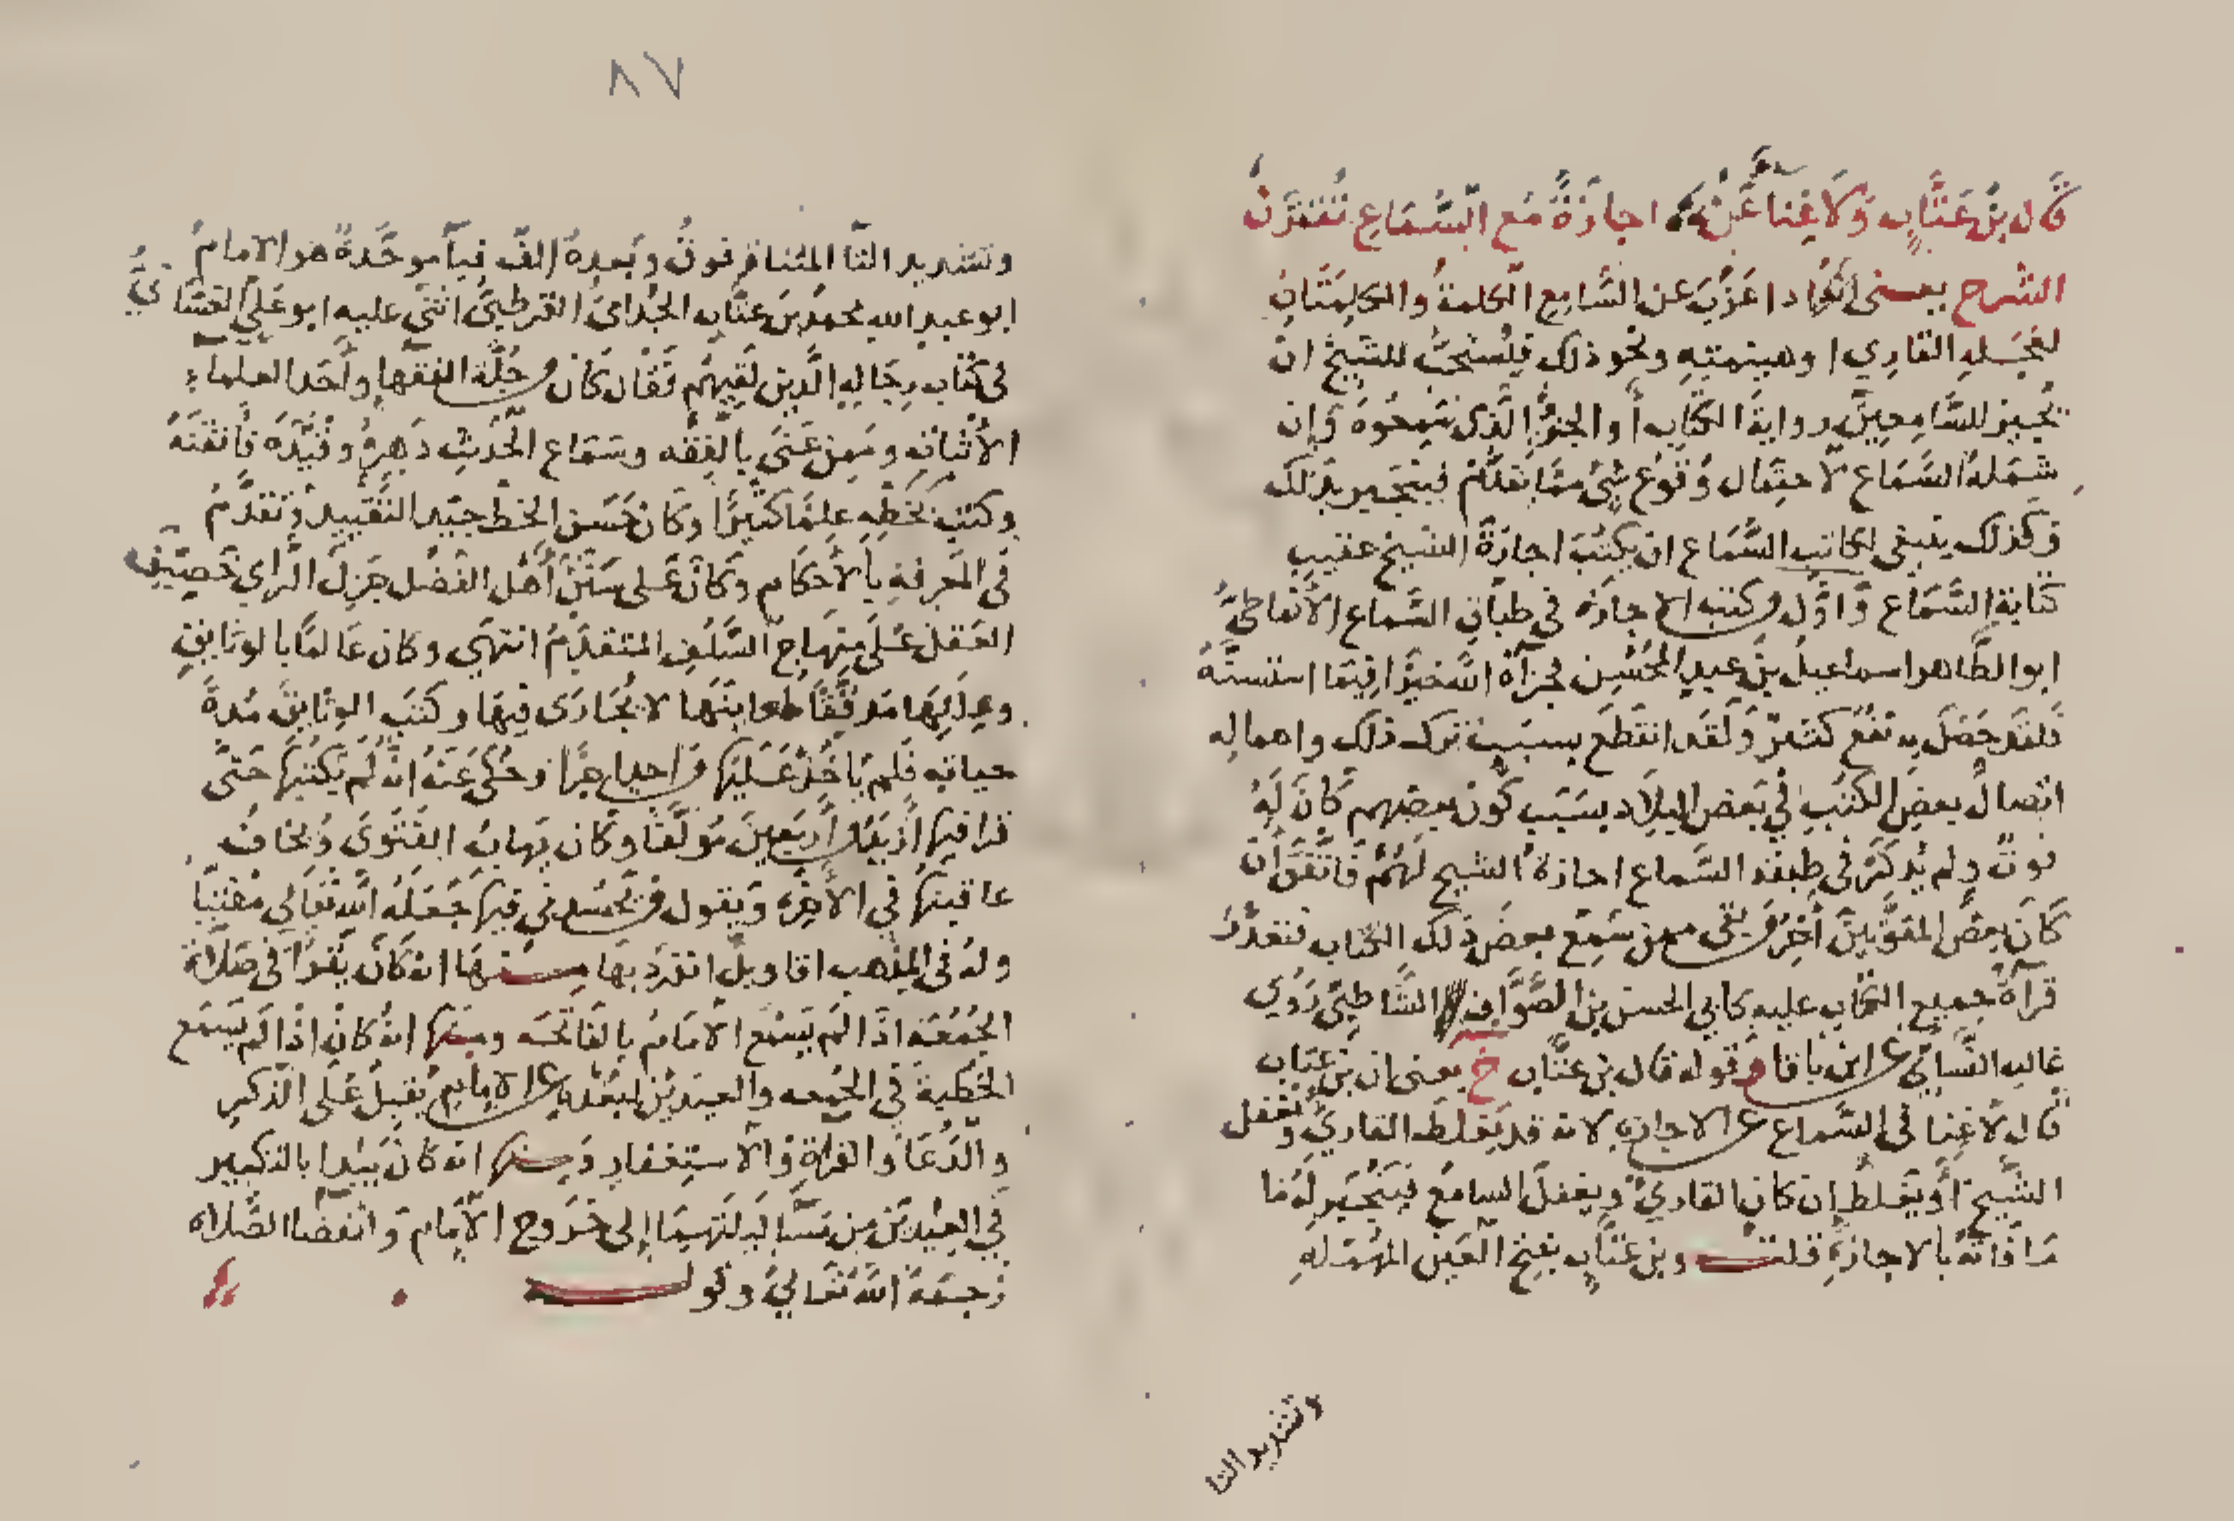 قال بن عتاب ولا غنا عن اجازة مع السماع تقترن
الشرح يعني انه اذا عزب عن السامع الكلمة والكلمتان
لعجلة القاري او هينمته ونحو ذلك فيستحب للشيخ ان
يجيز للسامعين رواية الكتاب أو الجزء الذي سمعوه وإن
شمله السماع لاحتمال وقوع شيء مما تقدم فينجبر بذلك
وكذلك ينبغي لكاتب السماع ان يكتب اجازة الشيخ عقيب
كتابة السماع واول من كتب الاجازة في طباق السماع الأنماطي
ابو الطاهر اسماعيل بن عبد المحسن فجزاه الله خيرا فيما استسنه
فلقد حصل به نفع كثير ولقد انقطع بسبب ترك ذلك واهماله
اتصال بعض الكتب في بعض البلاد بسبب كون بعضهم كان له
فوت ولم يذكر في طبقة السماع اجازة الشيخ لهم فاتفق أن
كان بعض المفوتين آخر من بقي ممن سمع بعض ذلك الكتاب فتعذر
قراءة جميع الكتاب عليه كابي الحسن بن الصواف الشاطبي روي
غالب النسائي عن ابن باقا وقوله قال بن عتاب خ يعني ان بن عتاب
قال لا غنا في السماع عن الاجازة لانه قد يغلط القاري ويغفل
الشيخ أو يغلط إن كان القاري ويغفل السامع فينجبر له ما
ما فاته بالاجازة قلت وبن عتاب بفتح العين المهملة
وتشديد التا
٨٧
وتشديد التا المثناة فوق وبعده الف فباء موحدة هو الامام
ابو عبد الله محمد بن عتاب الجذامي القرطبي اثنى عليه ابو علي الغساني
في كتاب رجاله الذين لقيهم فقال كان من جلة الفقها وأحد العلماء
الأثبات وممن عني بالفقه وسماع الحديث دهره وقيده فأتقنه
وكتب بخطه علما كثيرا وكان حسن الخط جيد التقييد وتقدم
في المعرفة بالأحكام وكان على سنن أهل الفضل جزل الراي حصيف
العقل على منهاج السلف المتقدم انتهى وكان عالما بالوثايق
وعللها مدققا لمعانيها لا يجارى فيها وكتب الوثايق مدة
حياته فلم يأخذ عليها من احد اجرا وحكي عنه انه لم يكتبها حتى
قرا فيها أزيد من أربعين مؤلفا وكان يهاب الفتوى ويخاف
عاقبتها في الآخرة ويقول من يحسدني فيها جعله الله تعالى مفتيا
وله في المذهب اقاويل انفرد بها منها انه كان يقرأ في صلاة
الجمعة اذا لم يسمع الامام بالفاتحة ومنها انه كان اذا لم يسمع
الخطبة في الجمعة والعيدين لبعده عن الامام يقبل على الذكر
والدعا والقراة والاستغفار ومنها انه كان يبدا بالتكبير
في العيدين من مساء ليلتهيما إلى خروج الامام وانقضا الصلاة
رحمه الله تعالى وقولـه